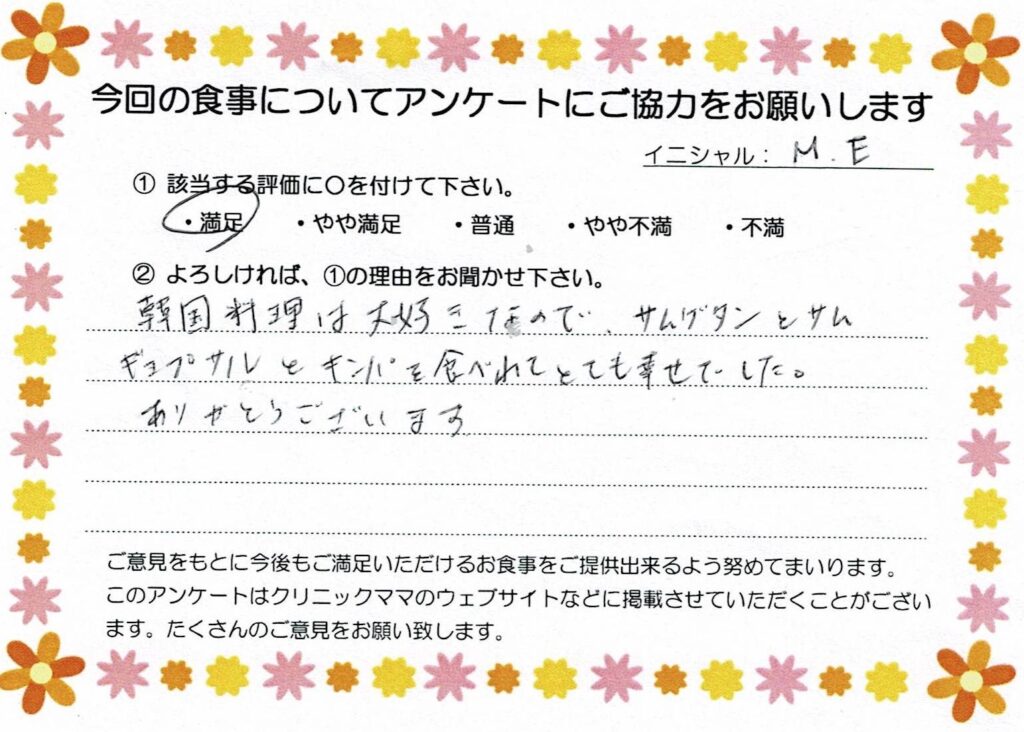 今回の食事についてアンケートにご協力をお願いします
イニシャル： M. E
① 該当する評価に〇を付けて下さい。
・満足 ・やや満足 ・普通 ・やや不満 ・不満
② よろしければ、①の理由をお聞かせ下さい。
韓国料理は大好きなので、サムゲタンとサム
ギョプサルとキンパを食べれてとても幸せでした。
ありがとうございます
ご意見をもとに今後もご満足いただけるお食事をご提供出来るよう努めてまいります。
このアンケートはクリニックママのウェブサイトなどに掲載させていただくことがござい
ます。たくさんのご意見をお願い致します。